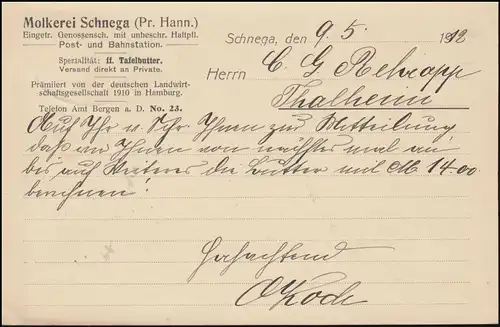 Molkerei Schnega (Pr. Hann.)
Eingetr. Genossensch. mit unbeschr. Haftpfl.
Post- und Bahnstation.
Spezialität: ff. Tafelbutter.
Versand direkt an Private.
Prämiiert von der deutschen Landwirt-
schaftsgesellschaft 1910 in Hamburg.
Telefon Amt Bergen a. D. No. 23.
Schnega, den 9. 5. 1912
Herrn C. G.
Thalheim
Auf Ihr v. Ihnen zur Mitteilung,
daß wir Ihnen von nächstes mal an
bis auf Weiteres die Butter mit M 14.00
berechnen!
Hochachtend
O Koch